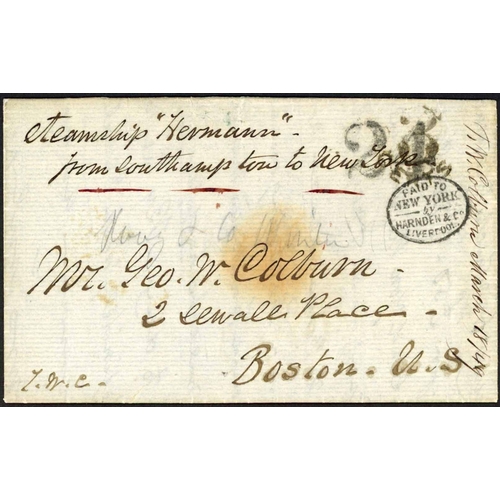 steamship "Hermann" -
from Southampton to New York
24
PAID TO
NEW YORK
by
HARNDEN & Co
LIVERPOOL
Mr. Geo. W. Colburn.
2 Sewall Place -
Boston - U.S
T. W. C. -
T. W. Colburn March 1849